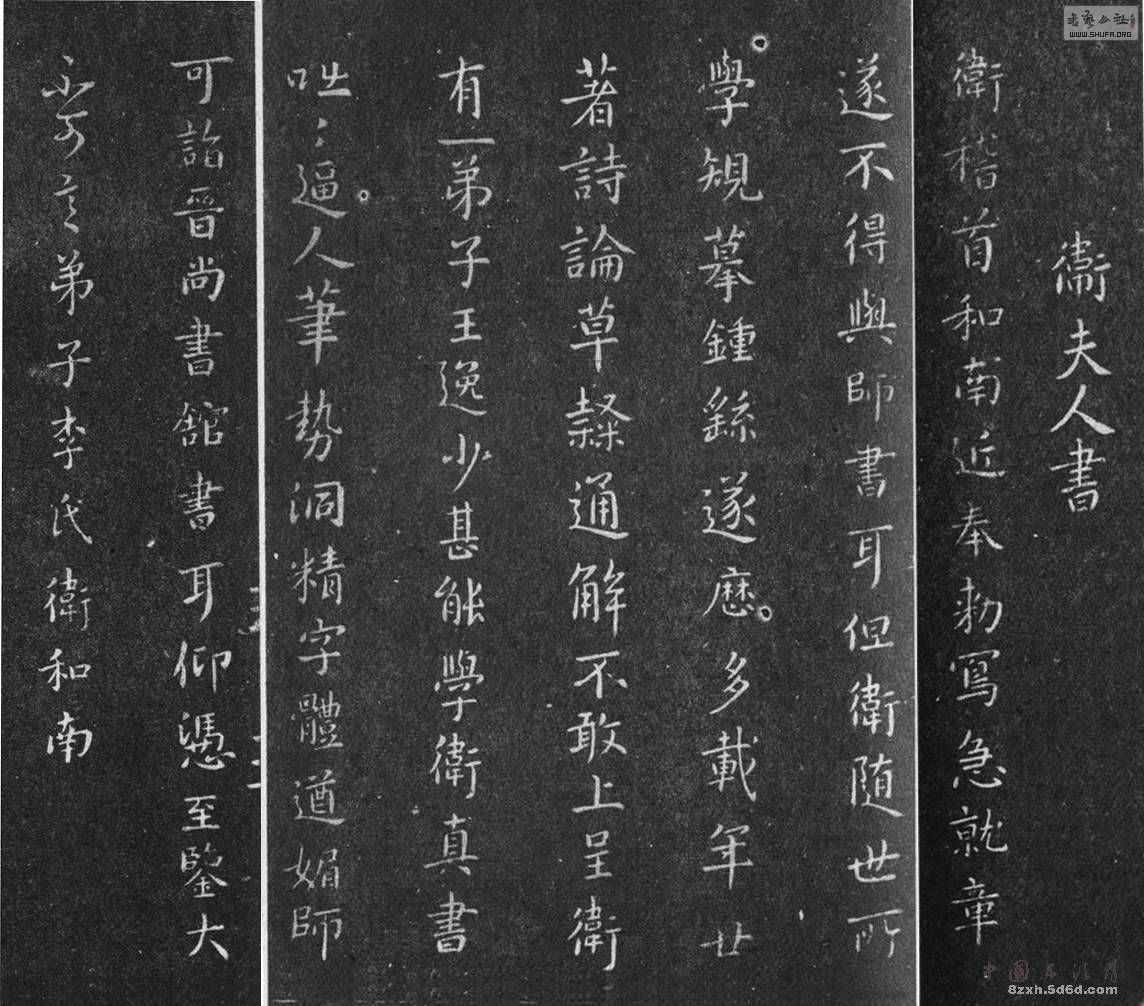 衛夫人書
衛稽首和南近奉勅寫急就章
遂不得與師書耳但衛随世所
學規摹鍾繇遂歷多載年廿
著詩論草隸通解不敢上呈衛
有一弟子王逸少甚能學衛真書
咄〻逼人筆勢洞精字體遒媚師
可詣晉尚書館書耳仰憑至鑒大
不可言弟子李氏衛和南
書藝公社
WWW.SHUFA.ORG
中國书法库
8zxh.5d6d.com